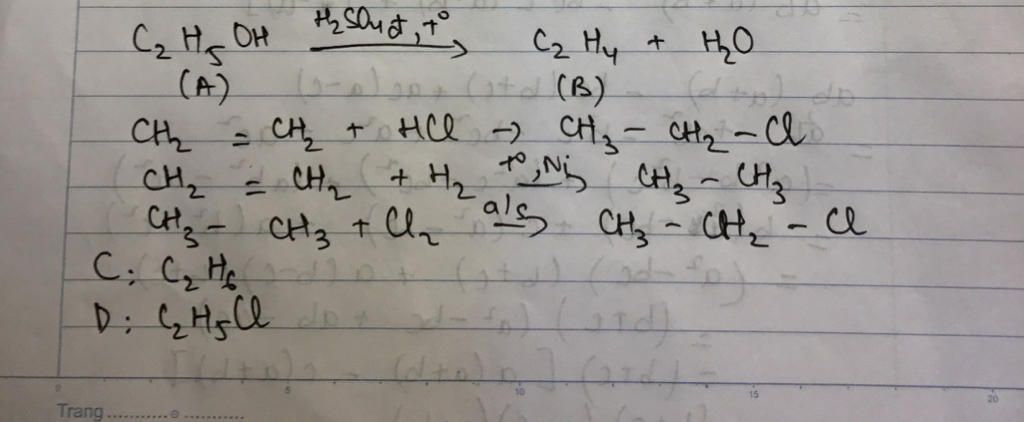 C₂H₅OH H₂SO₄đ, t° → C₂H₄ + H₂O
(A) (B)
CH₂ = CH₂ + HCl → CH₃ - CH₂ - Cl
CH₂ = CH₂ + H₂ t°, Ni → CH₃ - CH₃
CH₃ - CH₃ + Cl₂ a/s → CH₃ - CH₂ - Cl
C: C₂H₆
D: C₂H₅Cl
0 5 10 15 20
Trang